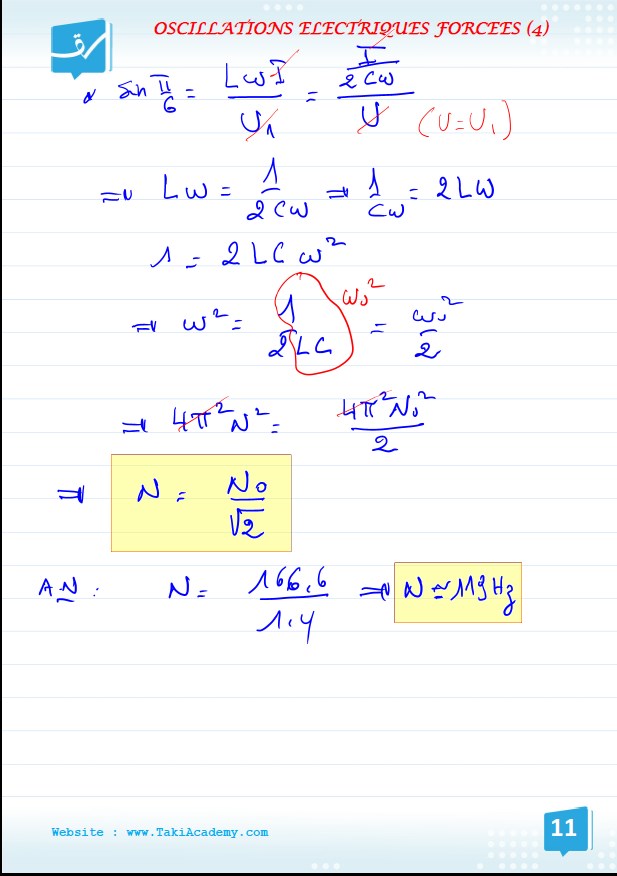 OSCILLATIONS ELECTRIQUES FORCEES (4)
sin π/6 = LωI/U₁ = (I/2Cω)/U (U=U₁)
⇒ Lω = 1/2Cω ⇒ 1/Cω = 2Lω
1 = 2LCω²
⇒ ω² = 1/2LC = ω₀²/2 ω₀²
⇒ 4π²N² = 4π²N₀²/2
⇒ N = N₀/√2
A.N : N = 166,6/1,4 ⇒ N ≃ 119Hz
Website : www.TakiAcademy.com
11